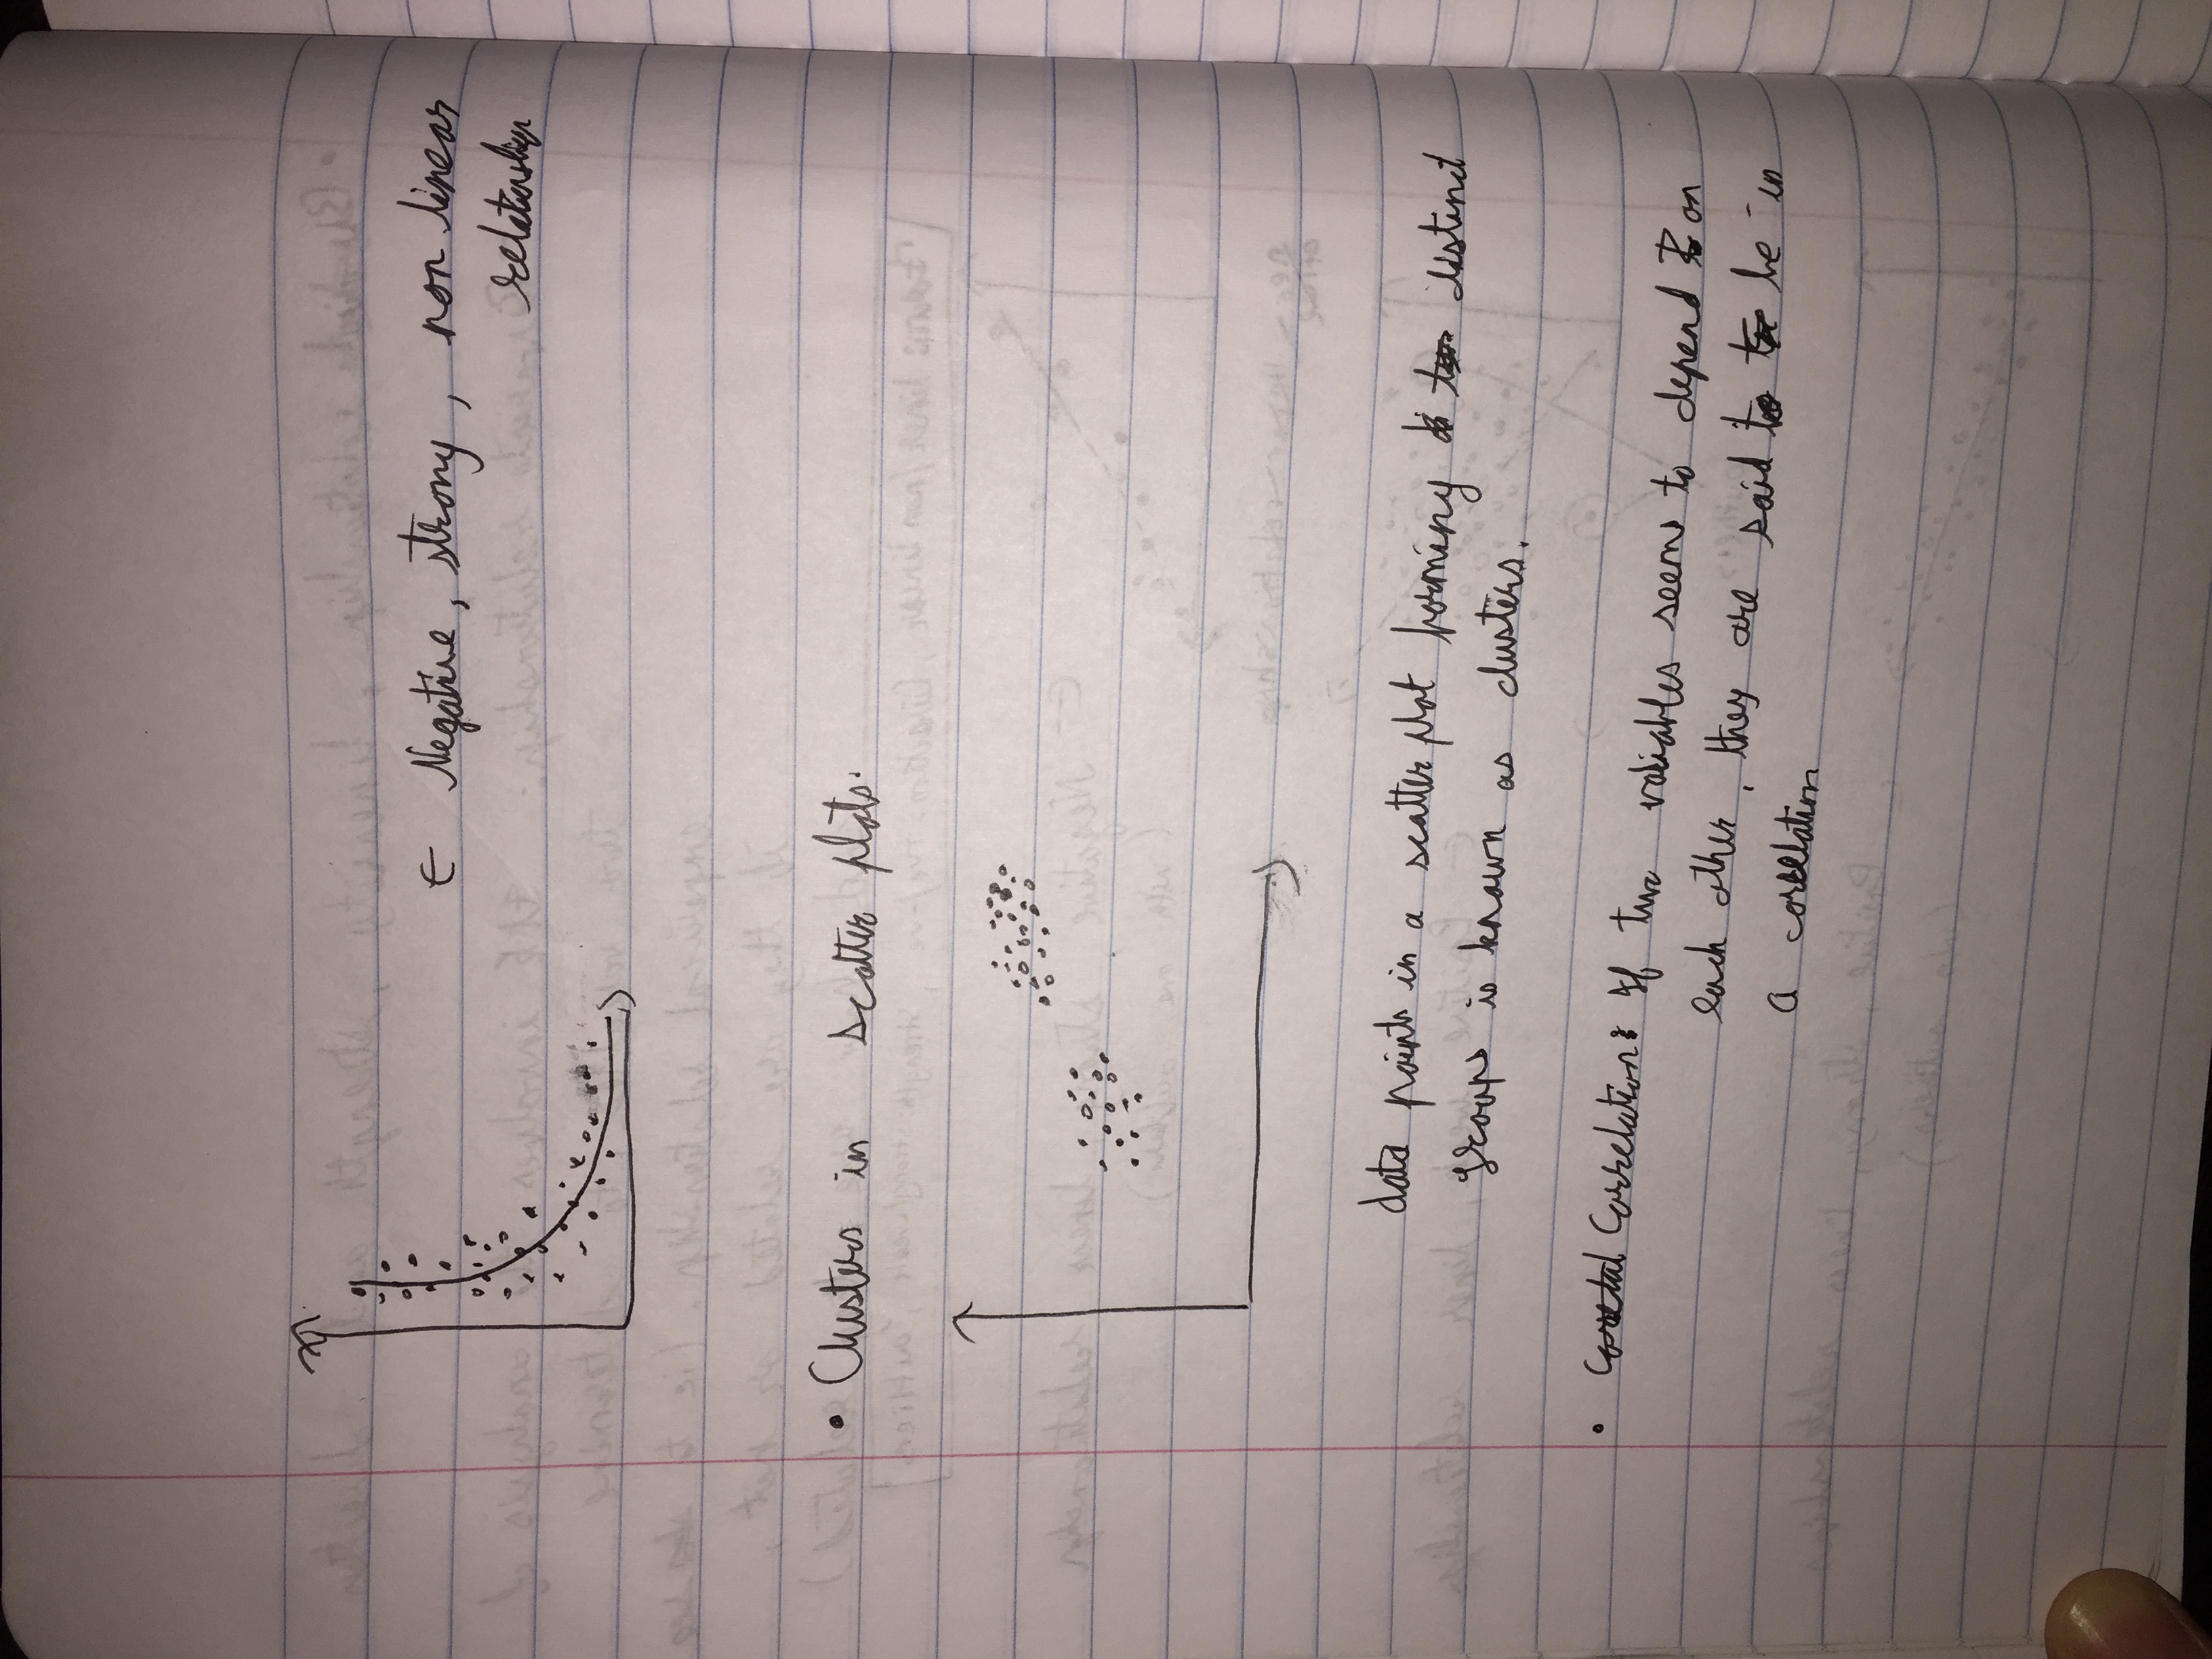 ← Negative, strong, non linear
relationship
• Clusters in scatter plots.
data points in a scatter plot forming distinct
groups is known as clusters.
• Correlation: If two variables seems to depend on
each other, they are said to be in
a correlation